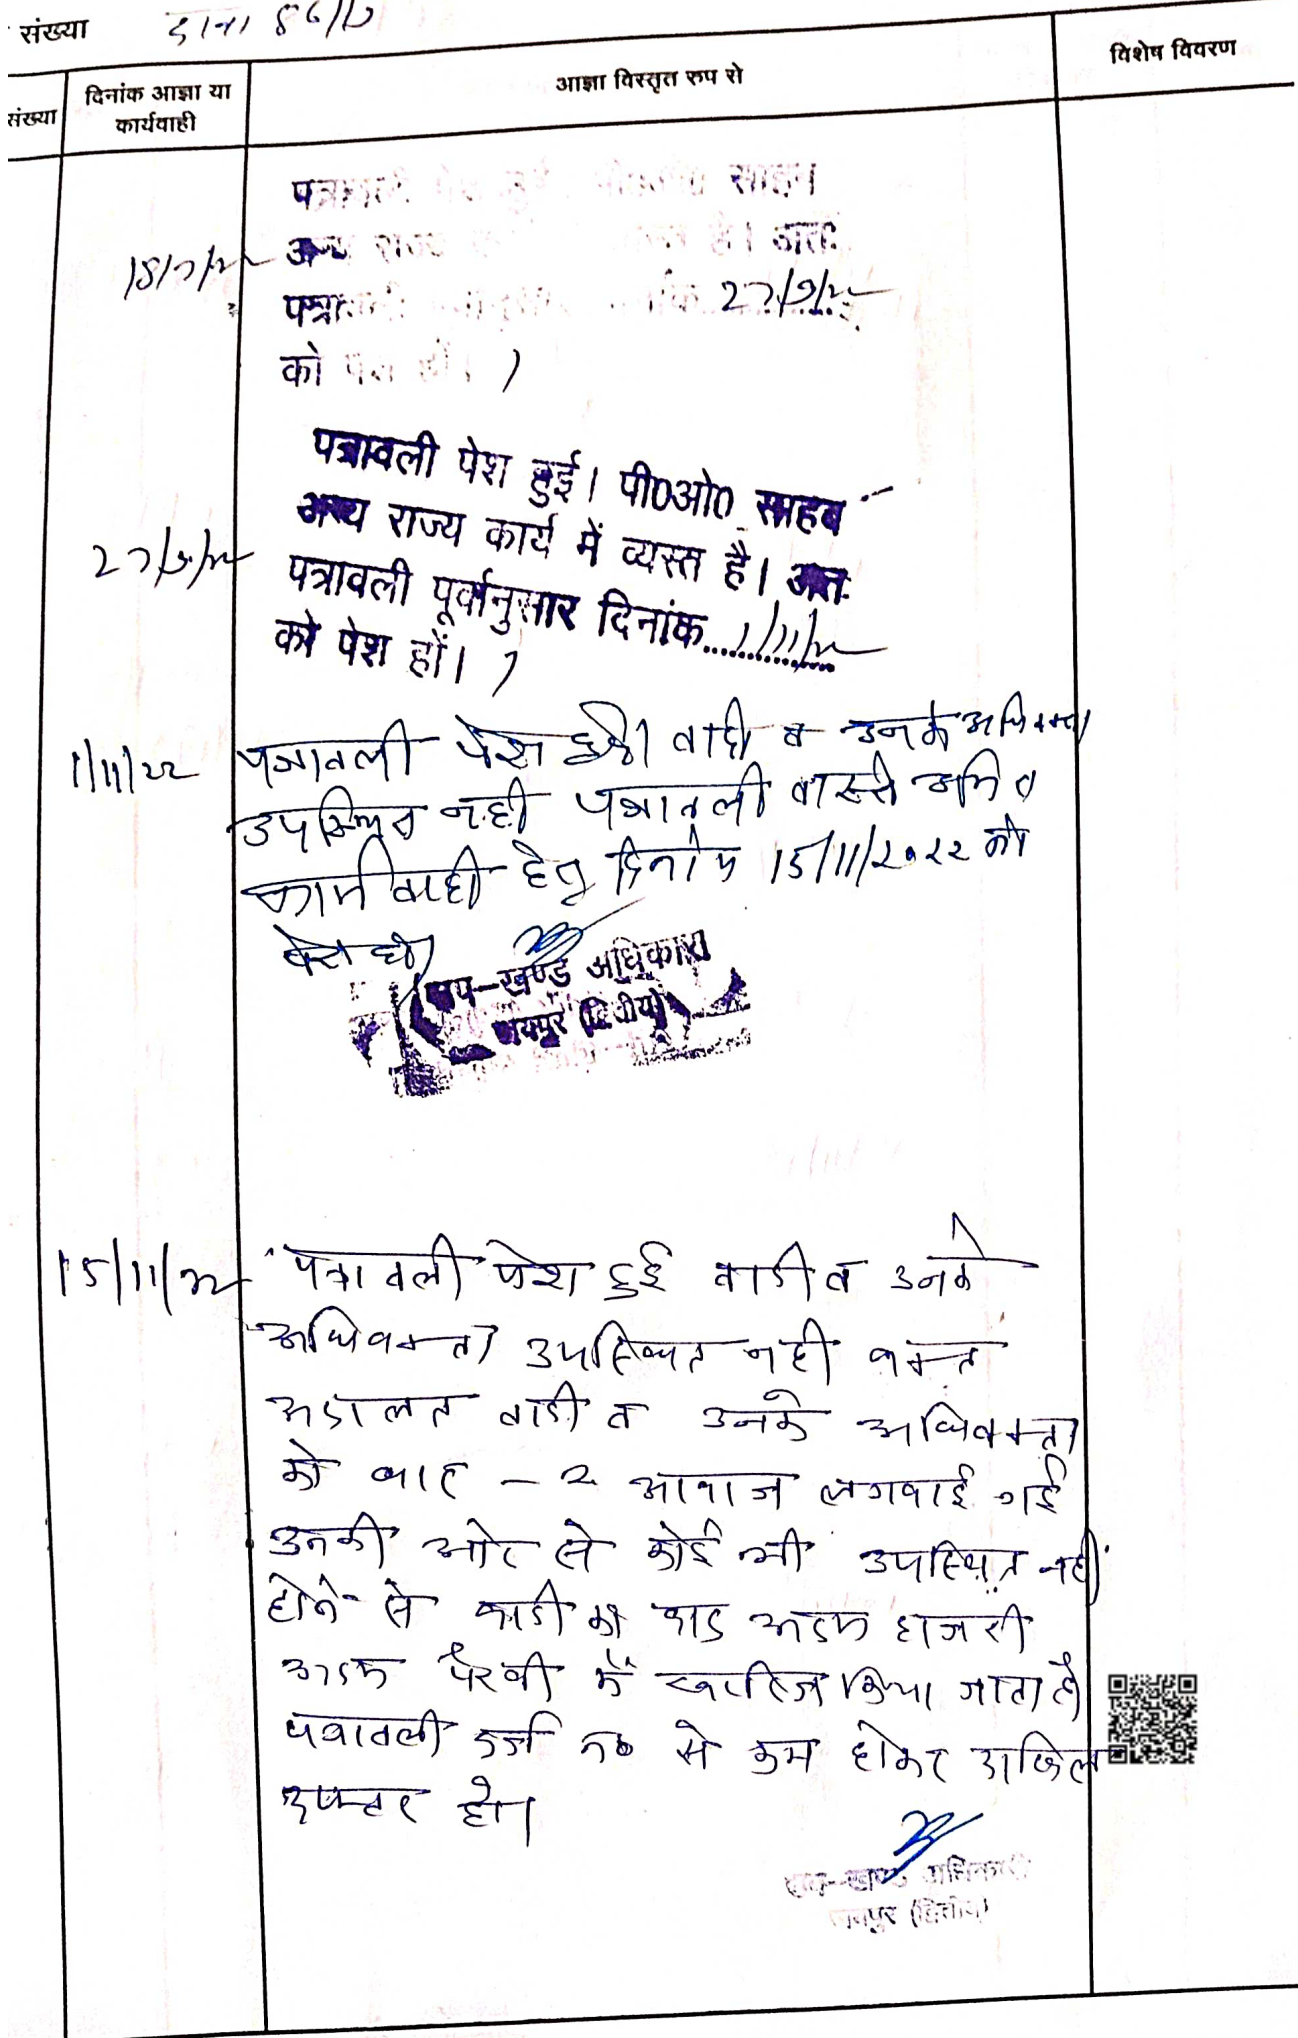 संख्या
संख्या
दिनांक आज्ञा या
कार्यवाही
आज्ञा विस्तृत रुप से
विशेष विवरण
पत्रावली पेश हुई। पी०ओ० साहब
18/7/22 अन्य राज्य है। अतः
पत्रावली 27/9/22
को पेश हों।
पत्रावली पेश हुई। पी0ओ0 साहब
27/9/22 अन्य राज्य कार्य में व्यस्त है। अतः
पत्रावली पूर्वानुसार दिनांक 1/11/22
को पेश हों।
1/11/22 पत्रावली पेश हुई। वादी व उनके अधिवक्ता
उपस्थित नही पत्रावली वास्ते
कार्यवाही हेतु दिनांक 15/11/2022 को
पेश हो।
उप-खण्ड अधिकारी
जयपुर (द्वितीय)
15/11/22 पत्रावली पेश हुई वादी व उनके
अधिवक्ता उपस्थित नही वक्त
अदालत वादी व उनके अधिवक्ता
को बार-2 आवाज लगवाई गई
उनकी ओर से कोई भी उपस्थित नहीं
होने से वादी का वाद अदम हाजरी
अदम पैरवी में खारिज किया जाता है।
पत्रावली दर्ज न० से कम होकर दाखिल
दफ्तर हो।
उप-खण्ड अधिकारी
जयपुर (द्वितीय)